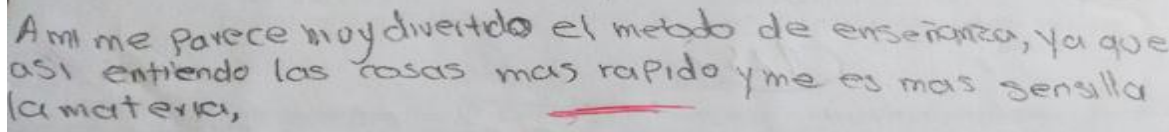 A mi me parece moy divertido el metodo de enseñanza, ya que
asi entiendo las cosas mas rapido y me es mas sensilla
la materia,